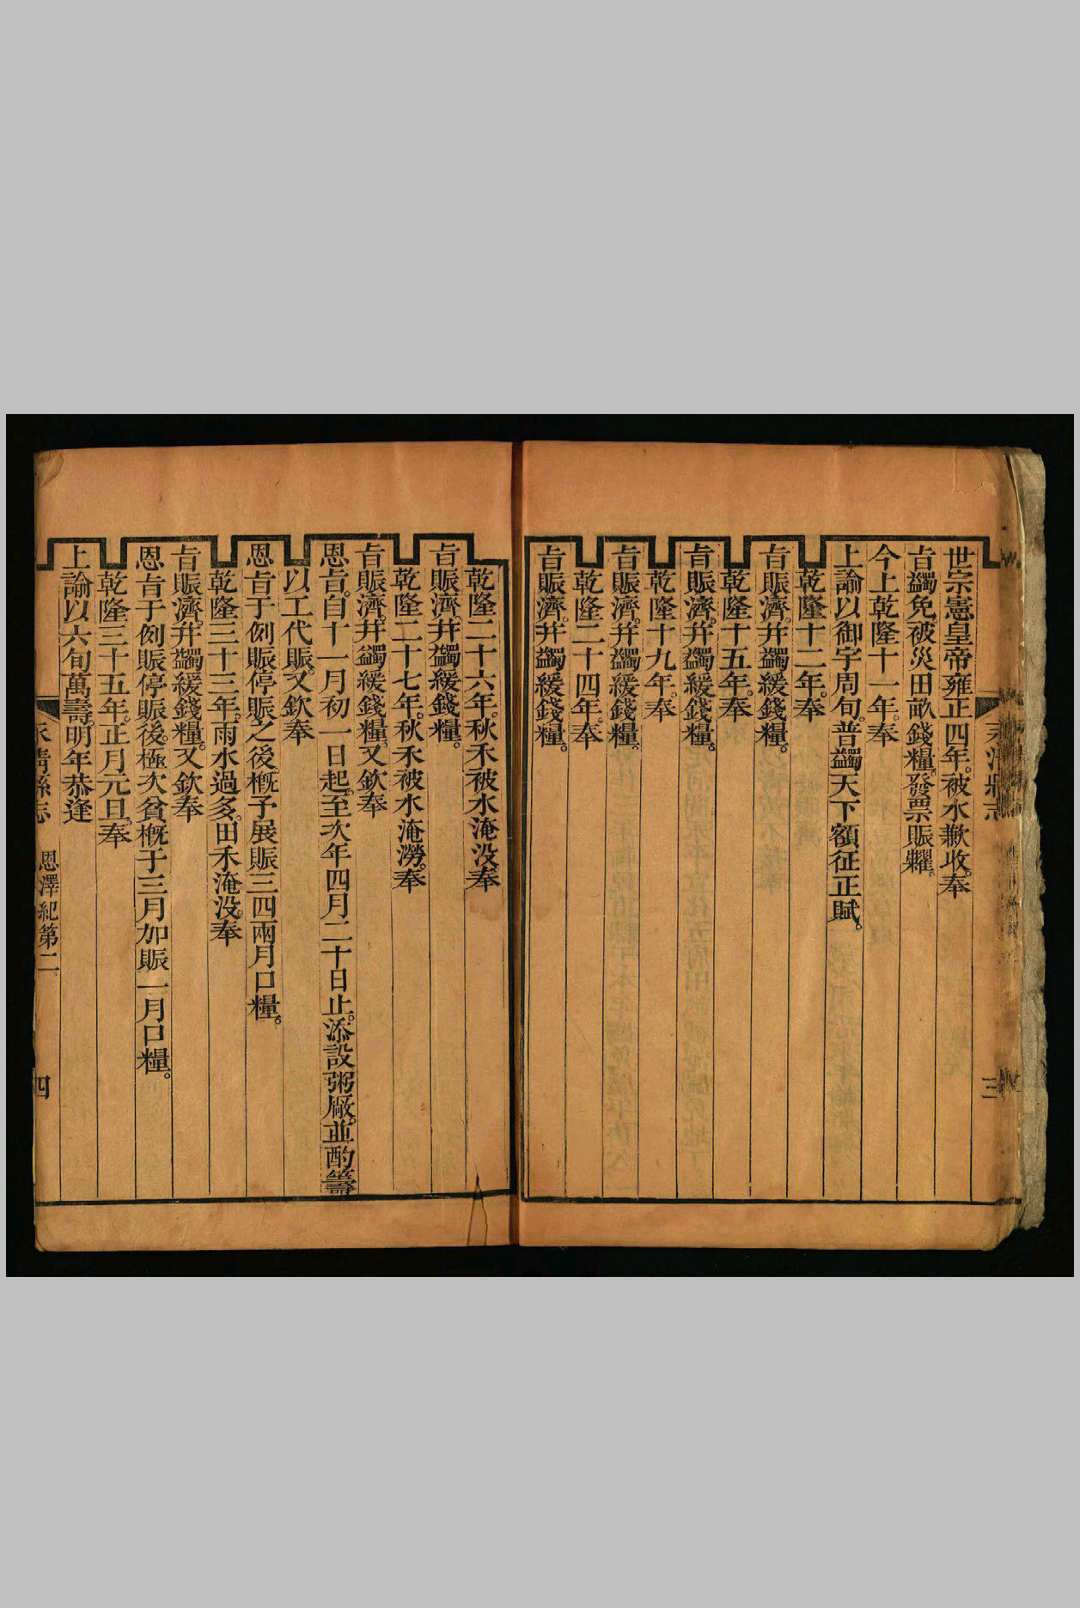 世宗憲皇帝雍正四年。被水歉收。奉
旨蠲免被災田畝錢糧。發票賑糶。
今上乾隆十一年。奉
上諭以御宇周旬。普蠲天下額征正賦。
乾隆十二年。奉
旨賑濟。并蠲緩錢糧。
乾隆十五年。奉
旨賑濟。并蠲緩錢糧。
乾隆十九年。奉
旨賑濟。并蠲緩錢糧。
乾隆二十四年。奉
旨賑濟。并蠲緩錢糧。
三
乾隆二十六年。秋禾被水淹没。奉
旨賑濟。并蠲緩錢糧。
乾隆二十七年。秋禾被水淹澇。奉
旨賑濟。并蠲緩錢糧。又欽奉
恩旨。自十一月初一日起。至次年四月二十日止。添設粥廠。並酌籌
以工代賑。又欽奉
恩旨于例賑停賑之後。概予展賑三四兩月口糧。
乾隆三十三年。雨水過多。田禾淹没。奉
旨賑濟。并蠲緩錢糧。又欽奉
恩旨于例賑停賑後。極次貧概于三月加賑一月口糧。
乾隆三十五年。正月元旦。奉
上諭以六旬萬壽。明年恭逢
永清縣志 恩澤紀第二 四